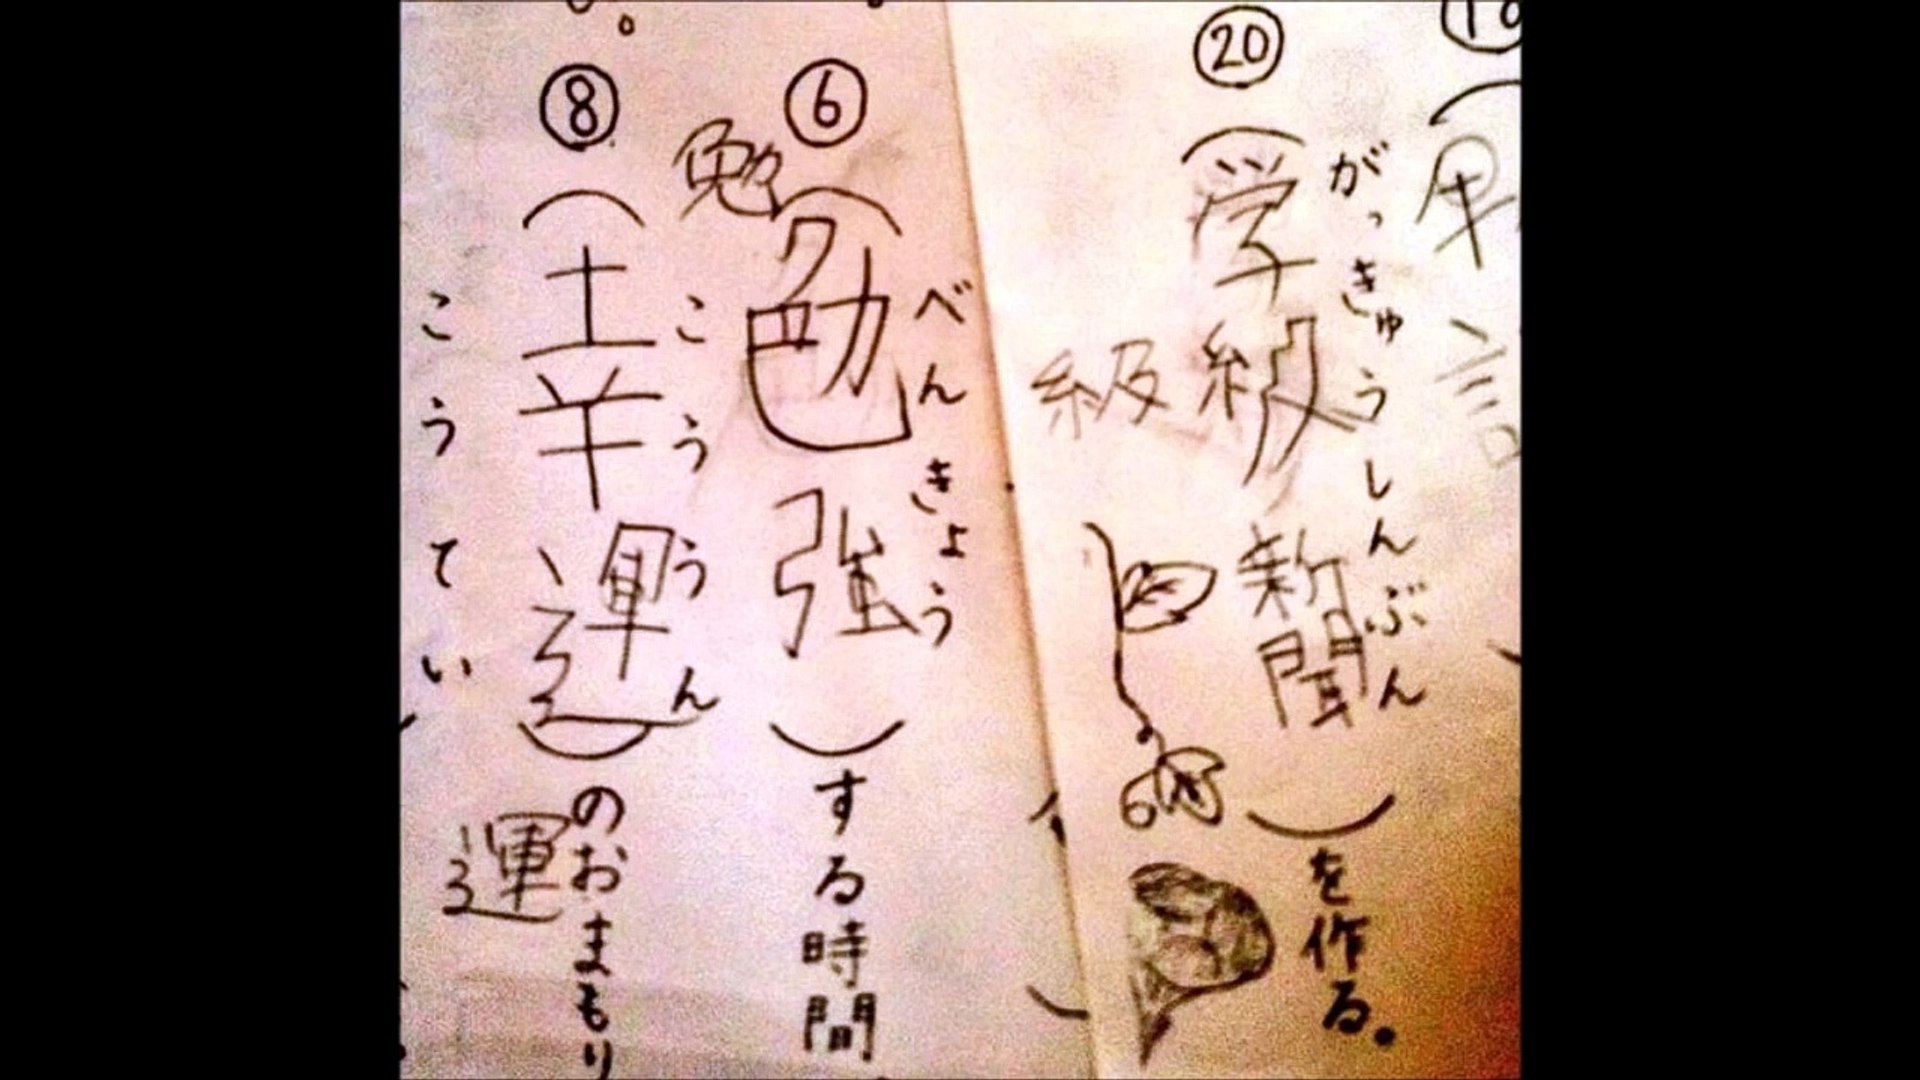 ⑳
がっきゅうしんぶん
(学級新聞)を作る。
級
⑥
べんきょう
(勉強)する時間
勉
⑧
こううん
(幸運)のおまもり
運
こうてい